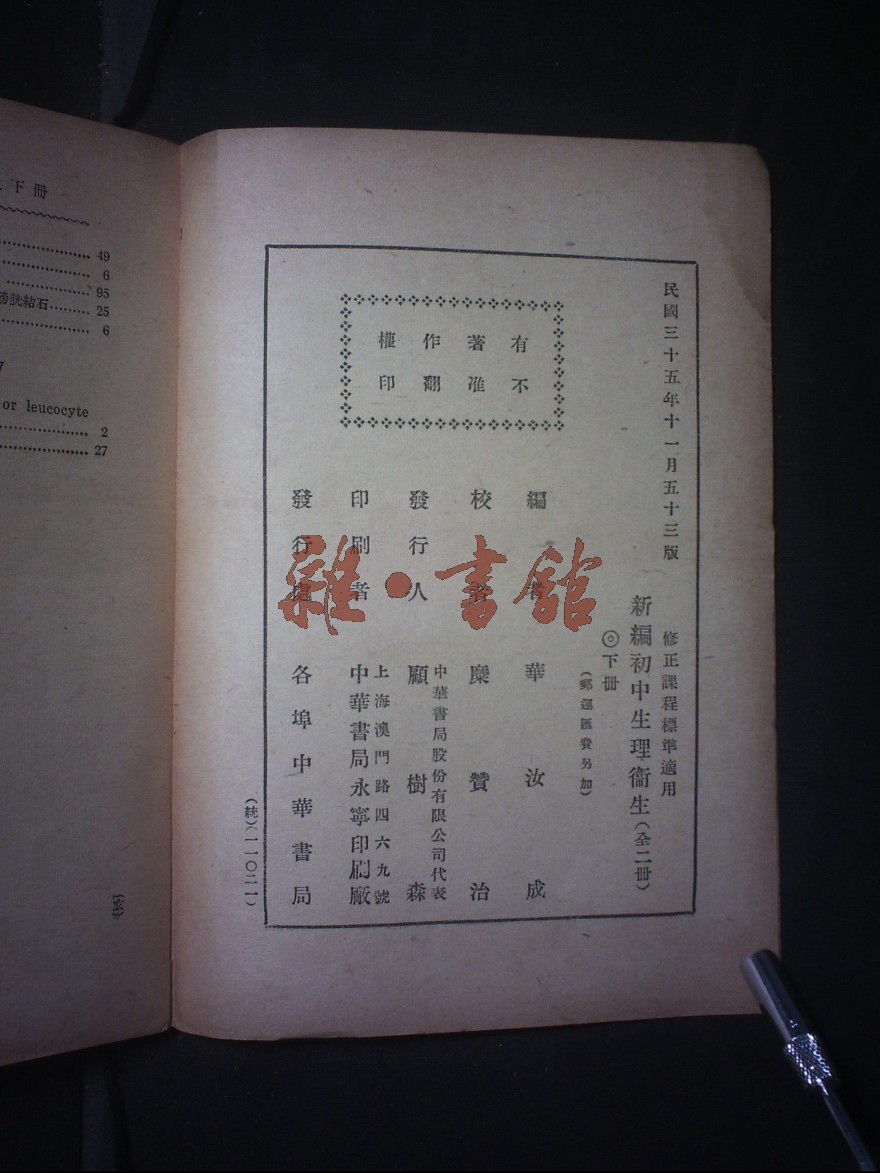 民國三十五年十一月五十三版
修正課程標準適用
新編初中生理衞生（全二冊）
◎下冊
（郵運匯費另加）
有不
著准
作翻
權印
編者 華汝成
校者 糜贊治
發行人 顧樹森
中華書局股份有限公司代表
印刷者 中華書局永寧印刷廠
上海澳門路四六九號
發行處 各埠中華書局
（統）（一一〇二一）
雜·書館
下冊
49
6
95
膀胱結石 25
6
or leucocyte
2
27